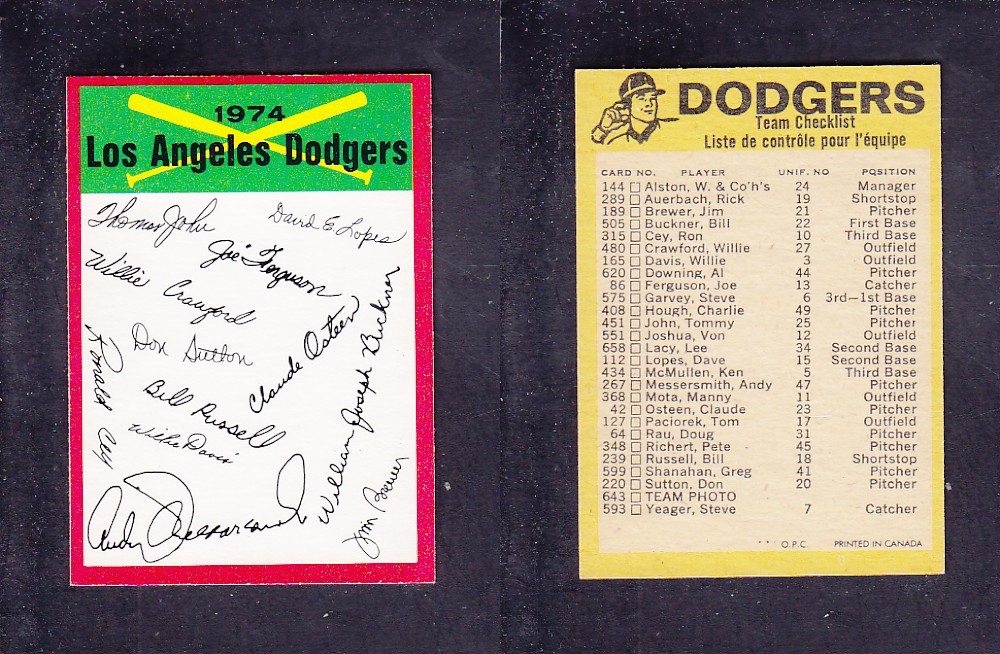 1974
Los Angeles Dodgers
Thomas John
David E. Lopes
Joe Ferguson
Willie Crawford
Don Sutton
Claude Osteen
Ronald Cey
Bill Russell
William Joseph Buckner
Willie Davis
Jim Brewer
Andy Messersmith
DODGERS
Team Checklist
Liste de contrôle pour l'équipe
CARD NO. PLAYER UNIF. NO POSITION
144 □ Alston, W. & Co'h's 24 Manager
289 □ Auerbach, Rick 19 Shortstop
189 □ Brewer, Jim 21 Pitcher
505 □ Buckner, Bill 22 First Base
315 □ Cey, Ron 10 Third Base
480 □ Crawford, Willie 27 Outfield
165 □ Davis, Willie 3 Outfield
620 □ Downing, Al 44 Pitcher
86 □ Ferguson, Joe 13 Catcher
575 □ Garvey, Steve 6 3rd—1st Base
408 □ Hough, Charlie 49 Pitcher
451 □ John, Tommy 25 Pitcher
551 □ Joshua, Von 12 Outfield
658 □ Lacy, Lee 34 Second Base
112 □ Lopes, Dave 15 Second Base
434 □ McMullen, Ken 5 Third Base
267 □ Messersmith, Andy 47 Pitcher
368 □ Mota, Manny 11 Outfield
42 □ Osteen, Claude 23 Pitcher
127 □ Paciorek, Tom 17 Outfield
64 □ Rau, Doug 31 Pitcher
348 □ Richert, Pete 45 Pitcher
239 □ Russell, Bill 18 Shortstop
599 □ Shanahan, Greg 41 Pitcher
220 □ Sutton, Don 20 Pitcher
643 □ TEAM PHOTO
593 □ Yeager, Steve 7 Catcher
*** O.P.C. PRINTED IN CANADA